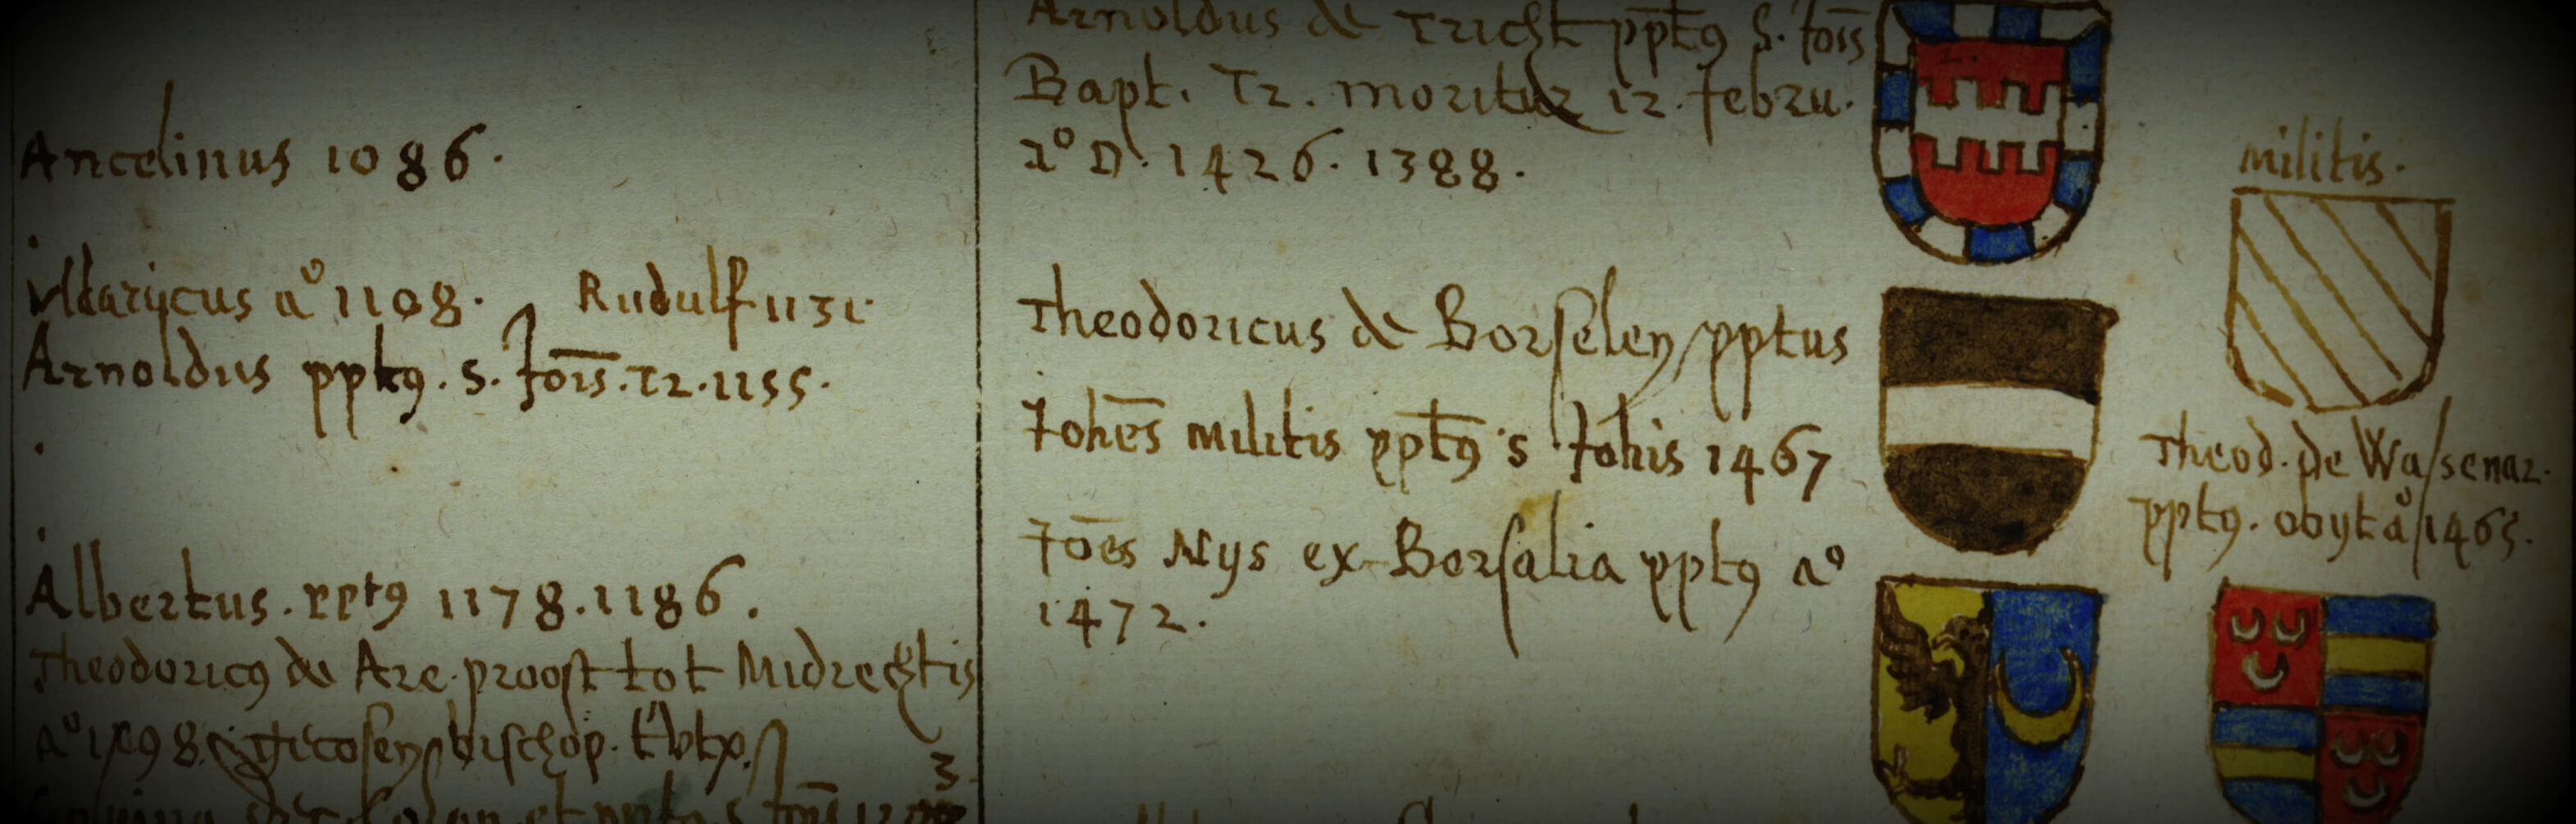 Ancelinus 1086.
Vldarijcus aº 1108. Rudulf 1131.
Arnoldus ppt9. S. Joīs. Tr. 1155.
Albertus. ppt9 1178. 1186.
Theodoric9 de Are. proost tot Midrechtis
aº 1198 bischop.
3
Arnoldus de Tricht ppt9 S. Joīs
Bapt. Tr. moritur 12. febru.
aº D. 1426. 1388.
Theodoricus de Borselen pptus
Johēs militis ppt9 S. Johis 1467
Joēs Nys ex Borsalia ppt9 aº
1472.
militis.
Theod. de Wassenar.
ppt9. obijt aº 1465.